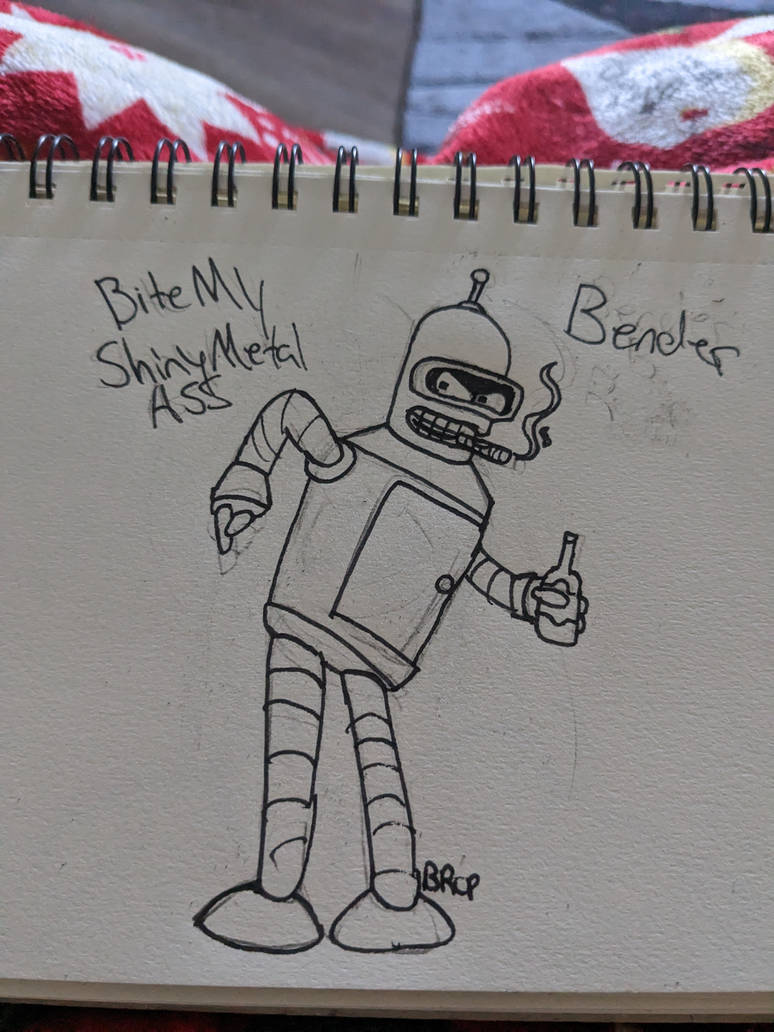 Bite My
Shiny Metal
ASS
Bender
BRCP